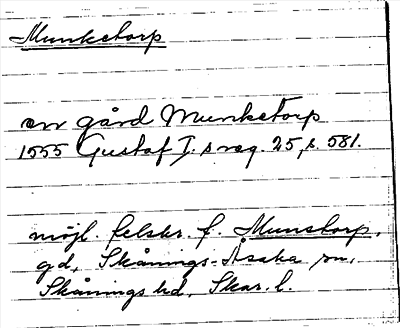 Munketorp
en gård Munketorp
1555 Gustaf I:s reg. 25, s. 581.
möjl. felskr. f. Munstorp,
gd, Skånings-Åsaka sn,
Skånings hd, Skar. l.